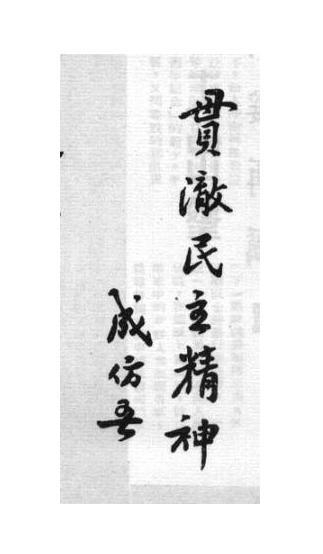 貫澈民主精神
成仿吾